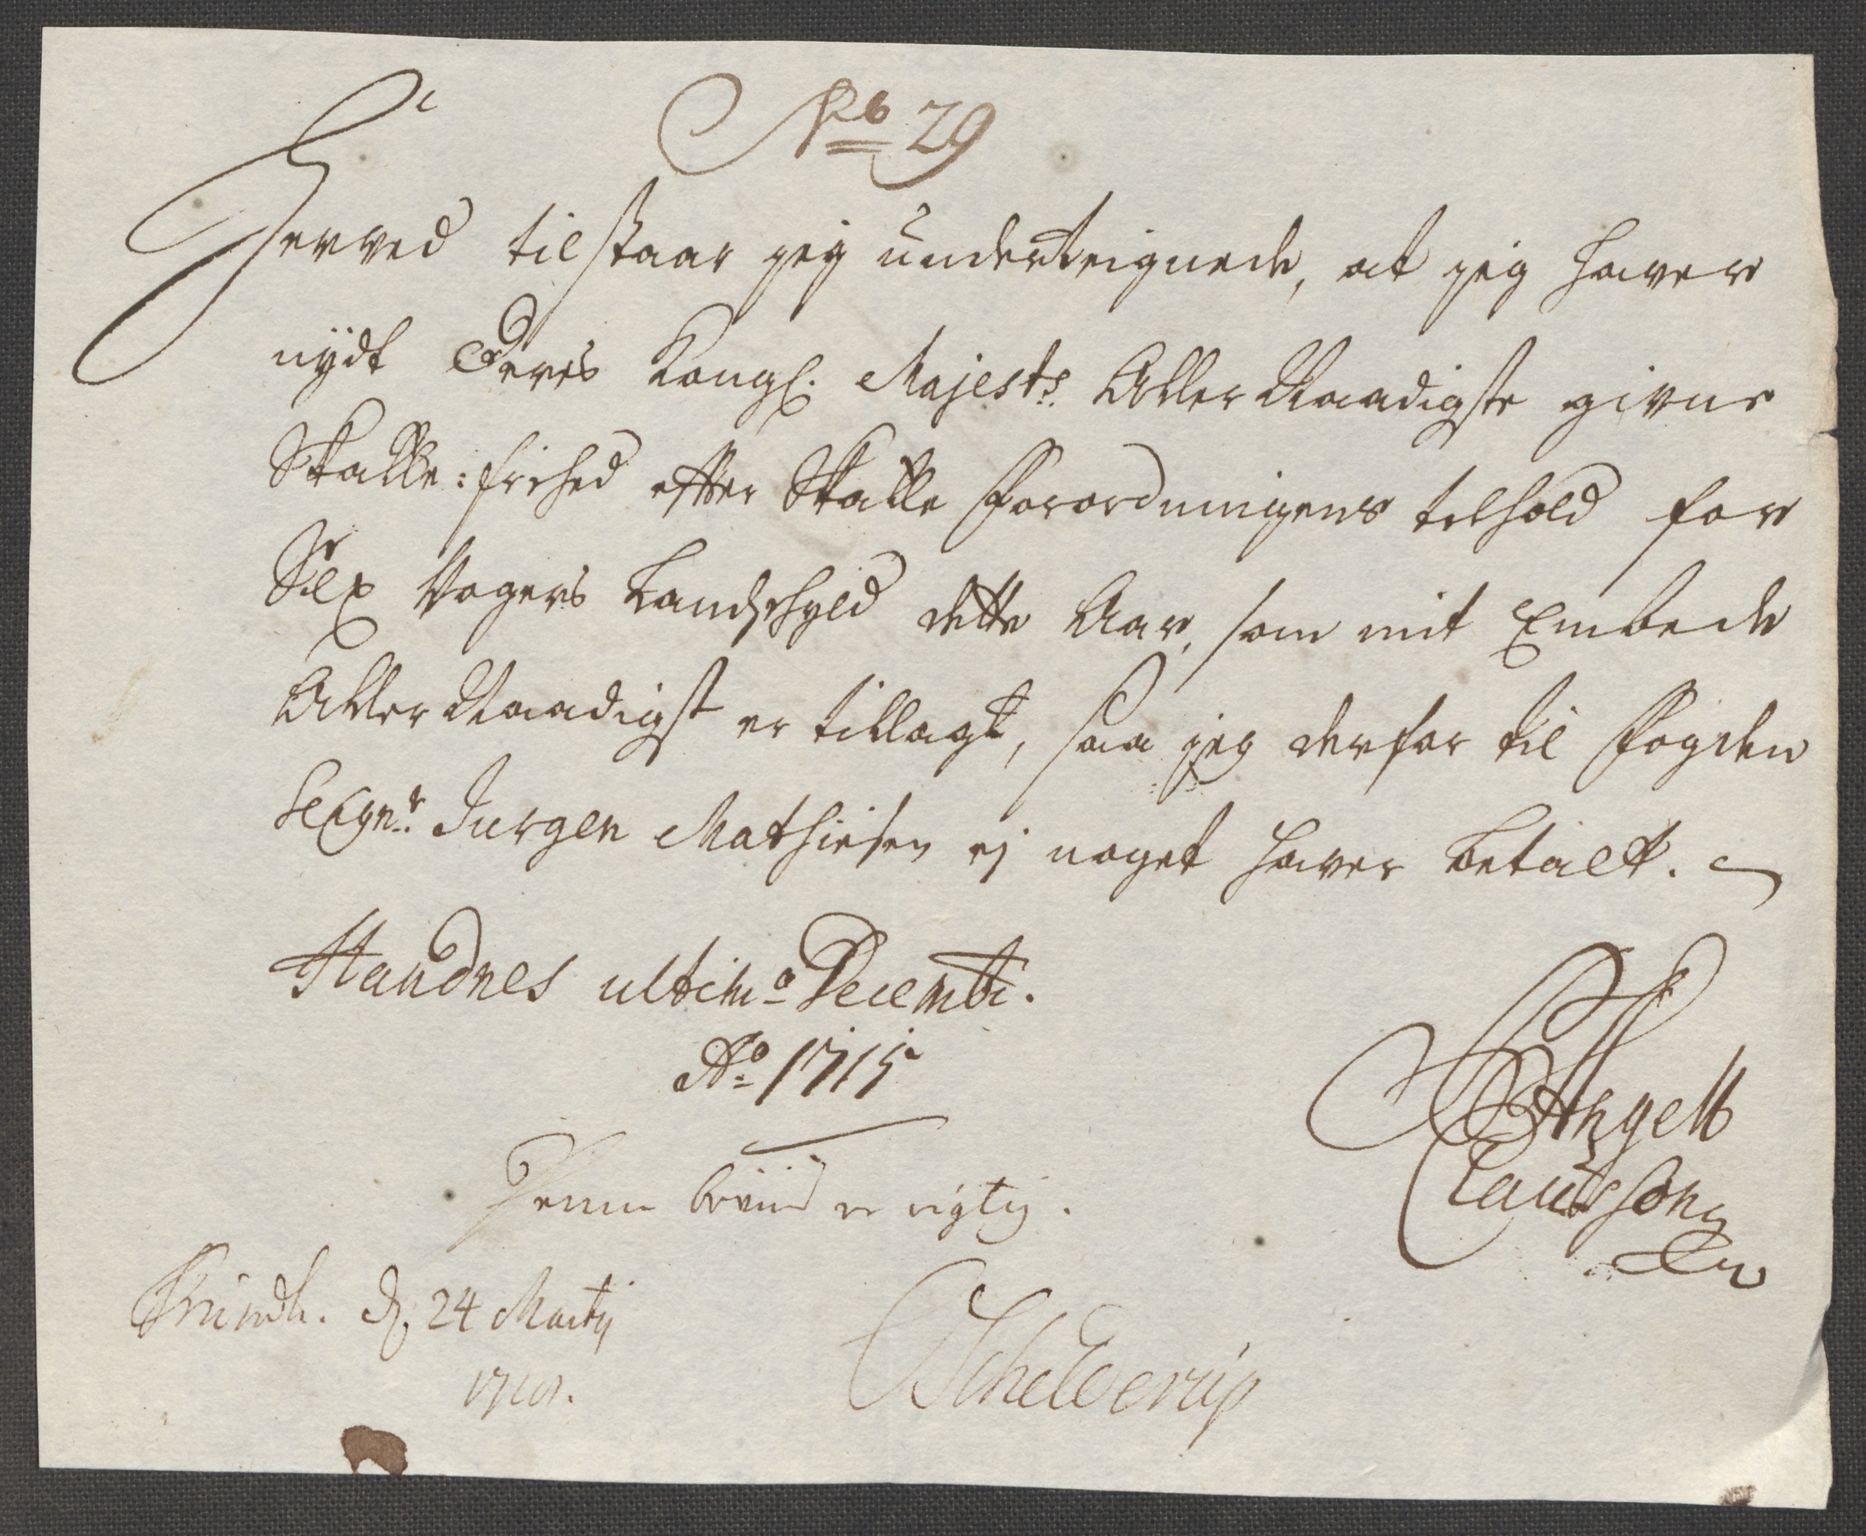 No 29
Herved tilstaar jeg underteignede, at jeg haver
nydt Deres Kongl. Majests. Aller Naadigste givne
Skatte: frihed efter Skatte Forordningens tilhold for
Sex Vogers Landschyld dette Aar, som mit Embede
Aller Naadigst er tillagt, saa jeg derfor til Fogden
Seignr. Jurgen Mathiesen ej noget haver betalt.
Standnes ultimo Decembr.
Ao 1715
Angell
Claussøn
Denne beviis er rigtig.
Trundh. d. 24 Martij
Schelderup